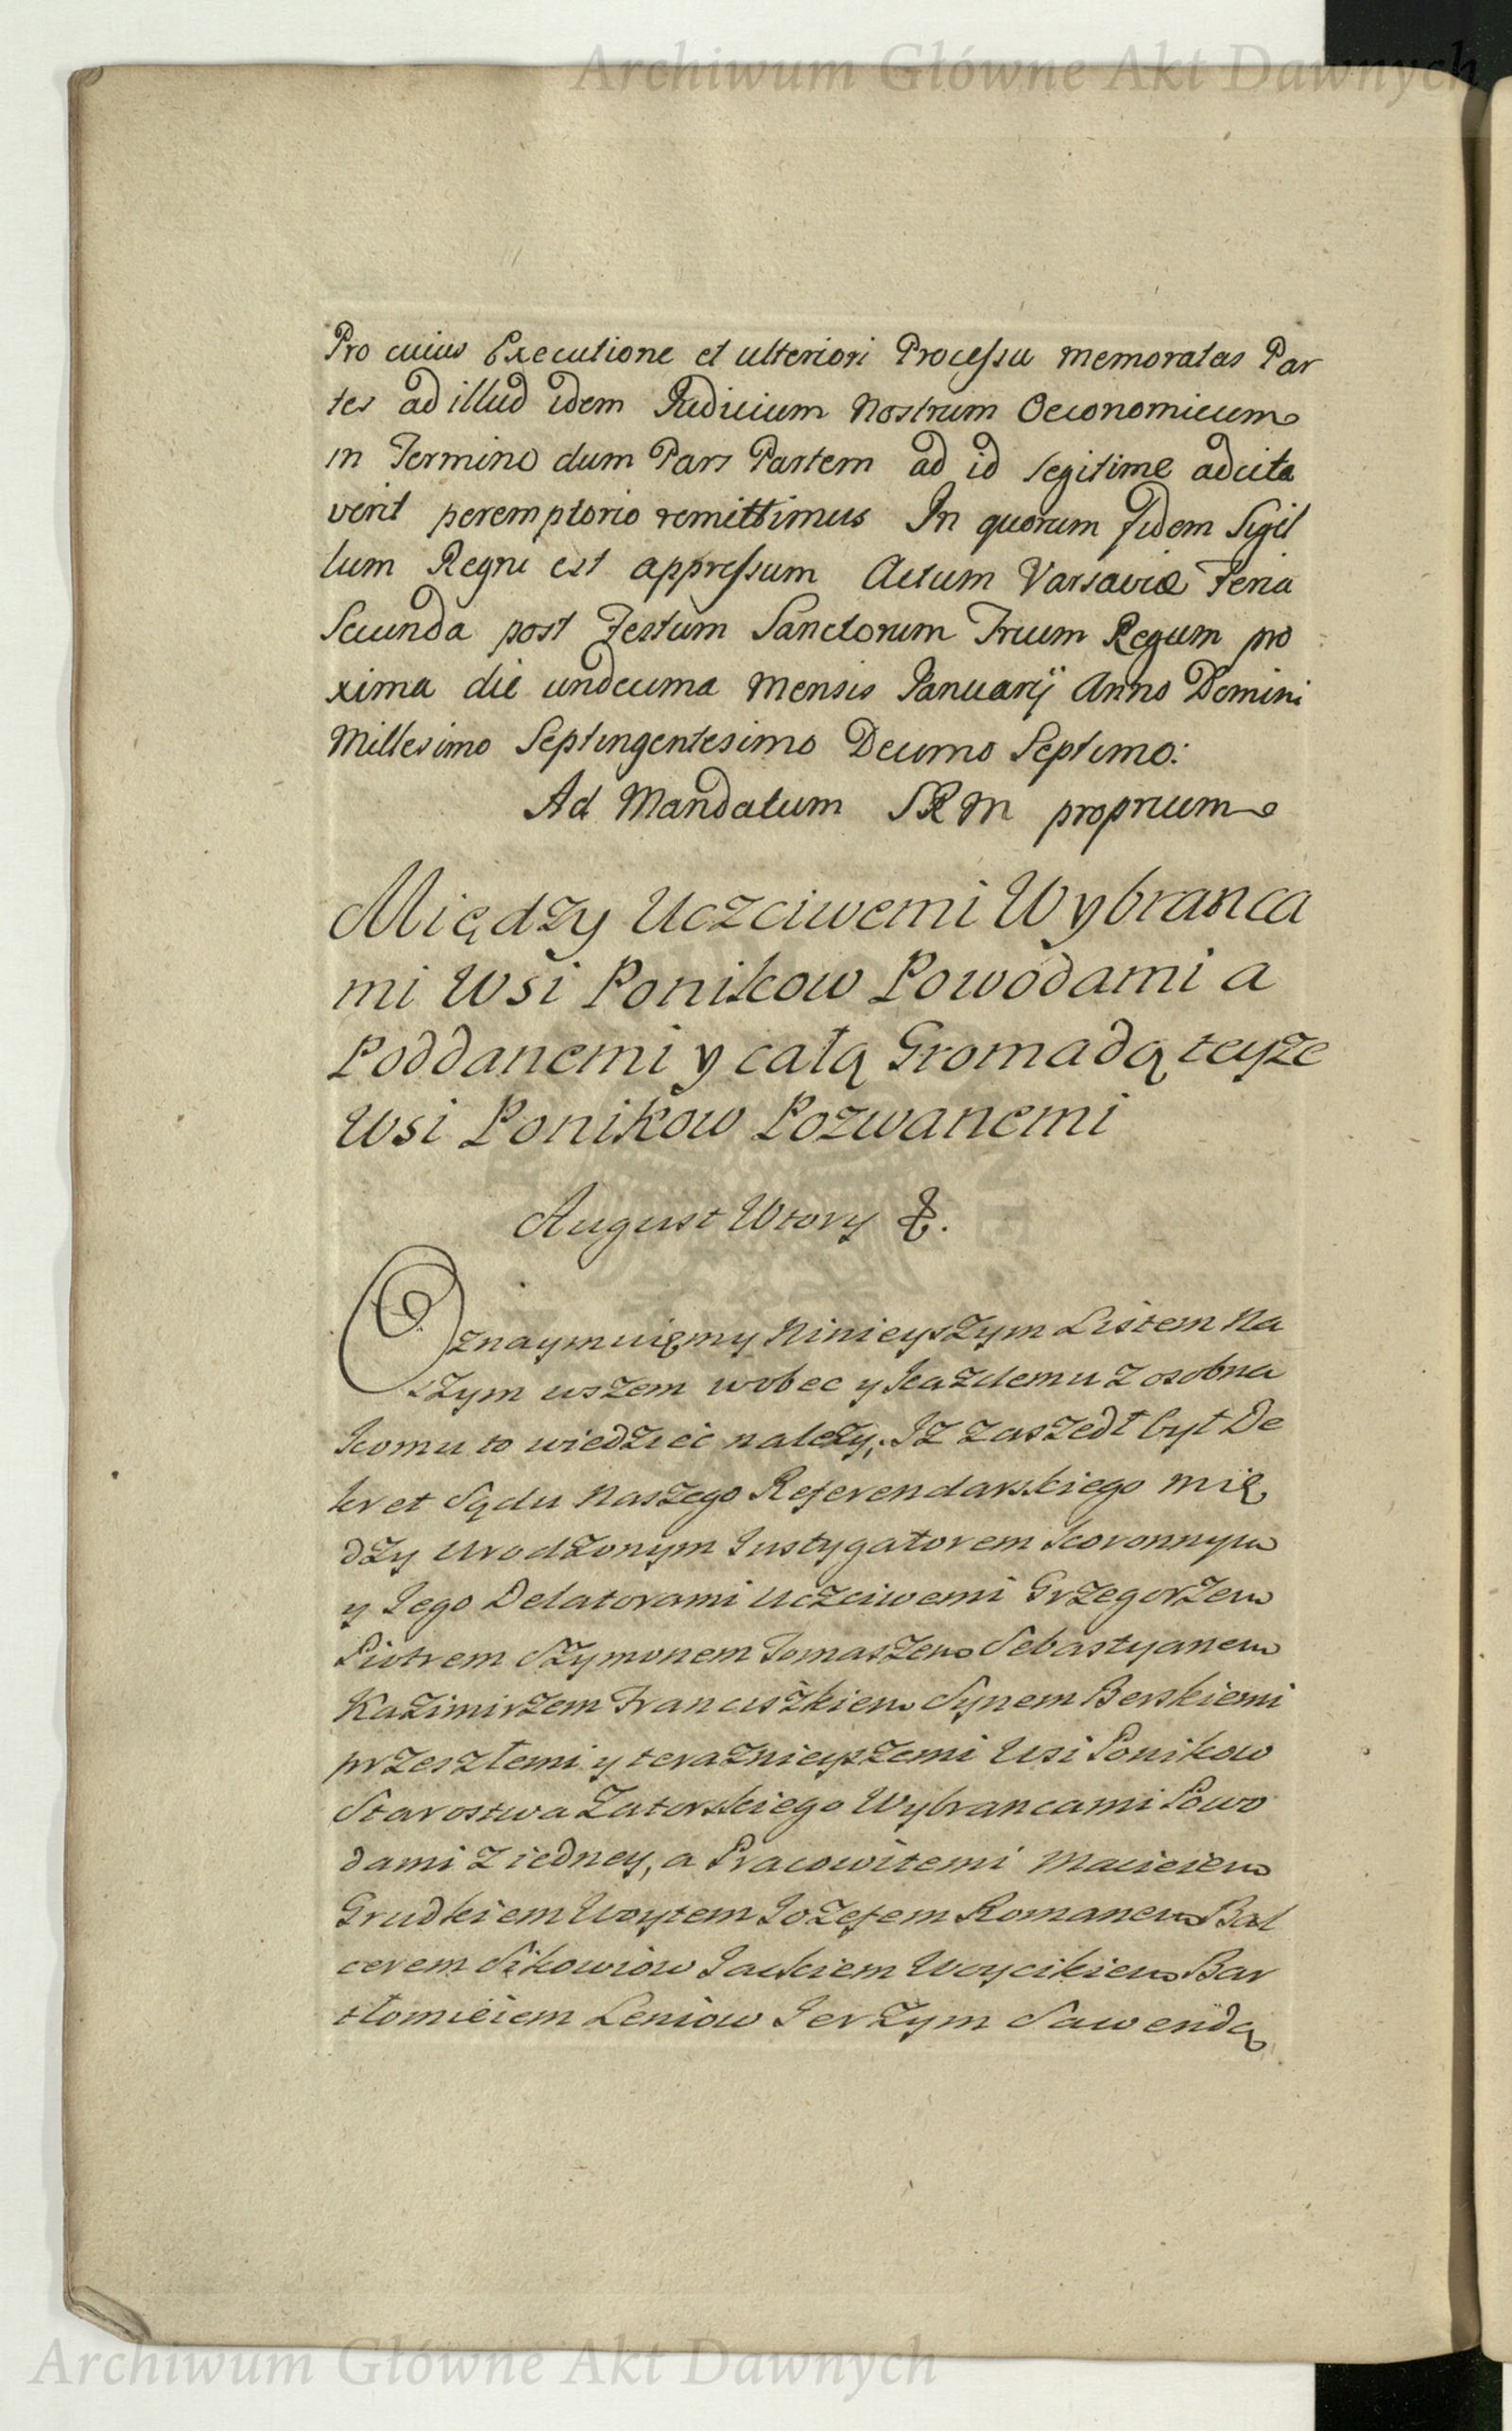 Archiwum Główne Akt Dawnych
Pro cuius Executione et ulteriori Processu memoratas Par
tes ad illud idem Iudicium Nostrum Oeconomicum
in Termino dum Pars Partem ad id legitime adcita
verit peremptorio remittimus In quorum fidem Sigil
lum Regni est appressum Actum Varsaviæ Feria
Secunda post Festum Sanctorum Trium Regum pro
xima die undecima Mensis Ianuarij Anno Domini
Millesimo Septingentesimo Decimo Septimo:
Ad Mandatum SRM proprium
Między Uczciwemi Wybranca
mi Wsi Ponikow Powodami a
Poddanemi y całą Gromadą teyze
Wsi Ponikow Pozwanemi
August Wtory &.
Oznaymuięmy Ninieyszym Listem Na
szym wszem wobec y kazdemu z osobna
komu to wiedzieć nalezy, Iz zaszedł był De
kret Sądu Naszego Referendarskiego mię
dzy Urodzonym Instygatorem koronnym
y Iego Delatorami Uczciwemi Grzegorzem
Piotrem Szymonem Tomaszem Sebastyanem
Kazimirzem Franciszkiem Synem Berskiemi
przeszłemi y teraznieyszemi Wsi Ponikow
Starostwa Zatorskiego Wybrancami Powo
dami z iedney, a Pracowitemi Macieiem
Grudkiem Woytem Iozefem Romanem Bal
cerem Sikowiow Iackiem Woycikiem Bar
tłomieiem Leniow Ierzym Sawendą
Archiwum Główne Akt Dawnych